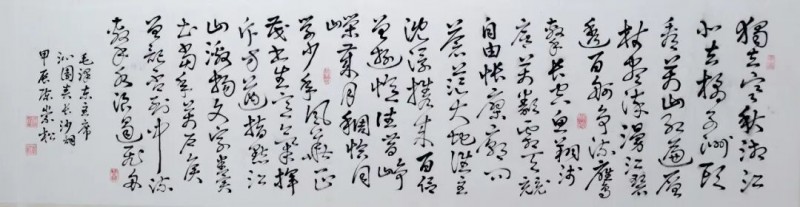 獨立寒秋湘江
北去橘子洲頭
看萬山紅遍層
林盡染漫江碧
透百舸爭流鷹
擊長空魚翔淺
底萬類霜天競
自由悵寥廓問
蒼茫大地誰主
沈浮攜來百侶
曾遊憶往昔崢
嶸歲月稠恰同
學少年風華正
茂書生意氣揮
斥方遒指點江
山激揚文字糞
土當年萬戶侯
曾記否到中流
擊水浪遏飛舟
毛澤東主席
沁園春長沙詞
甲辰陳崇松